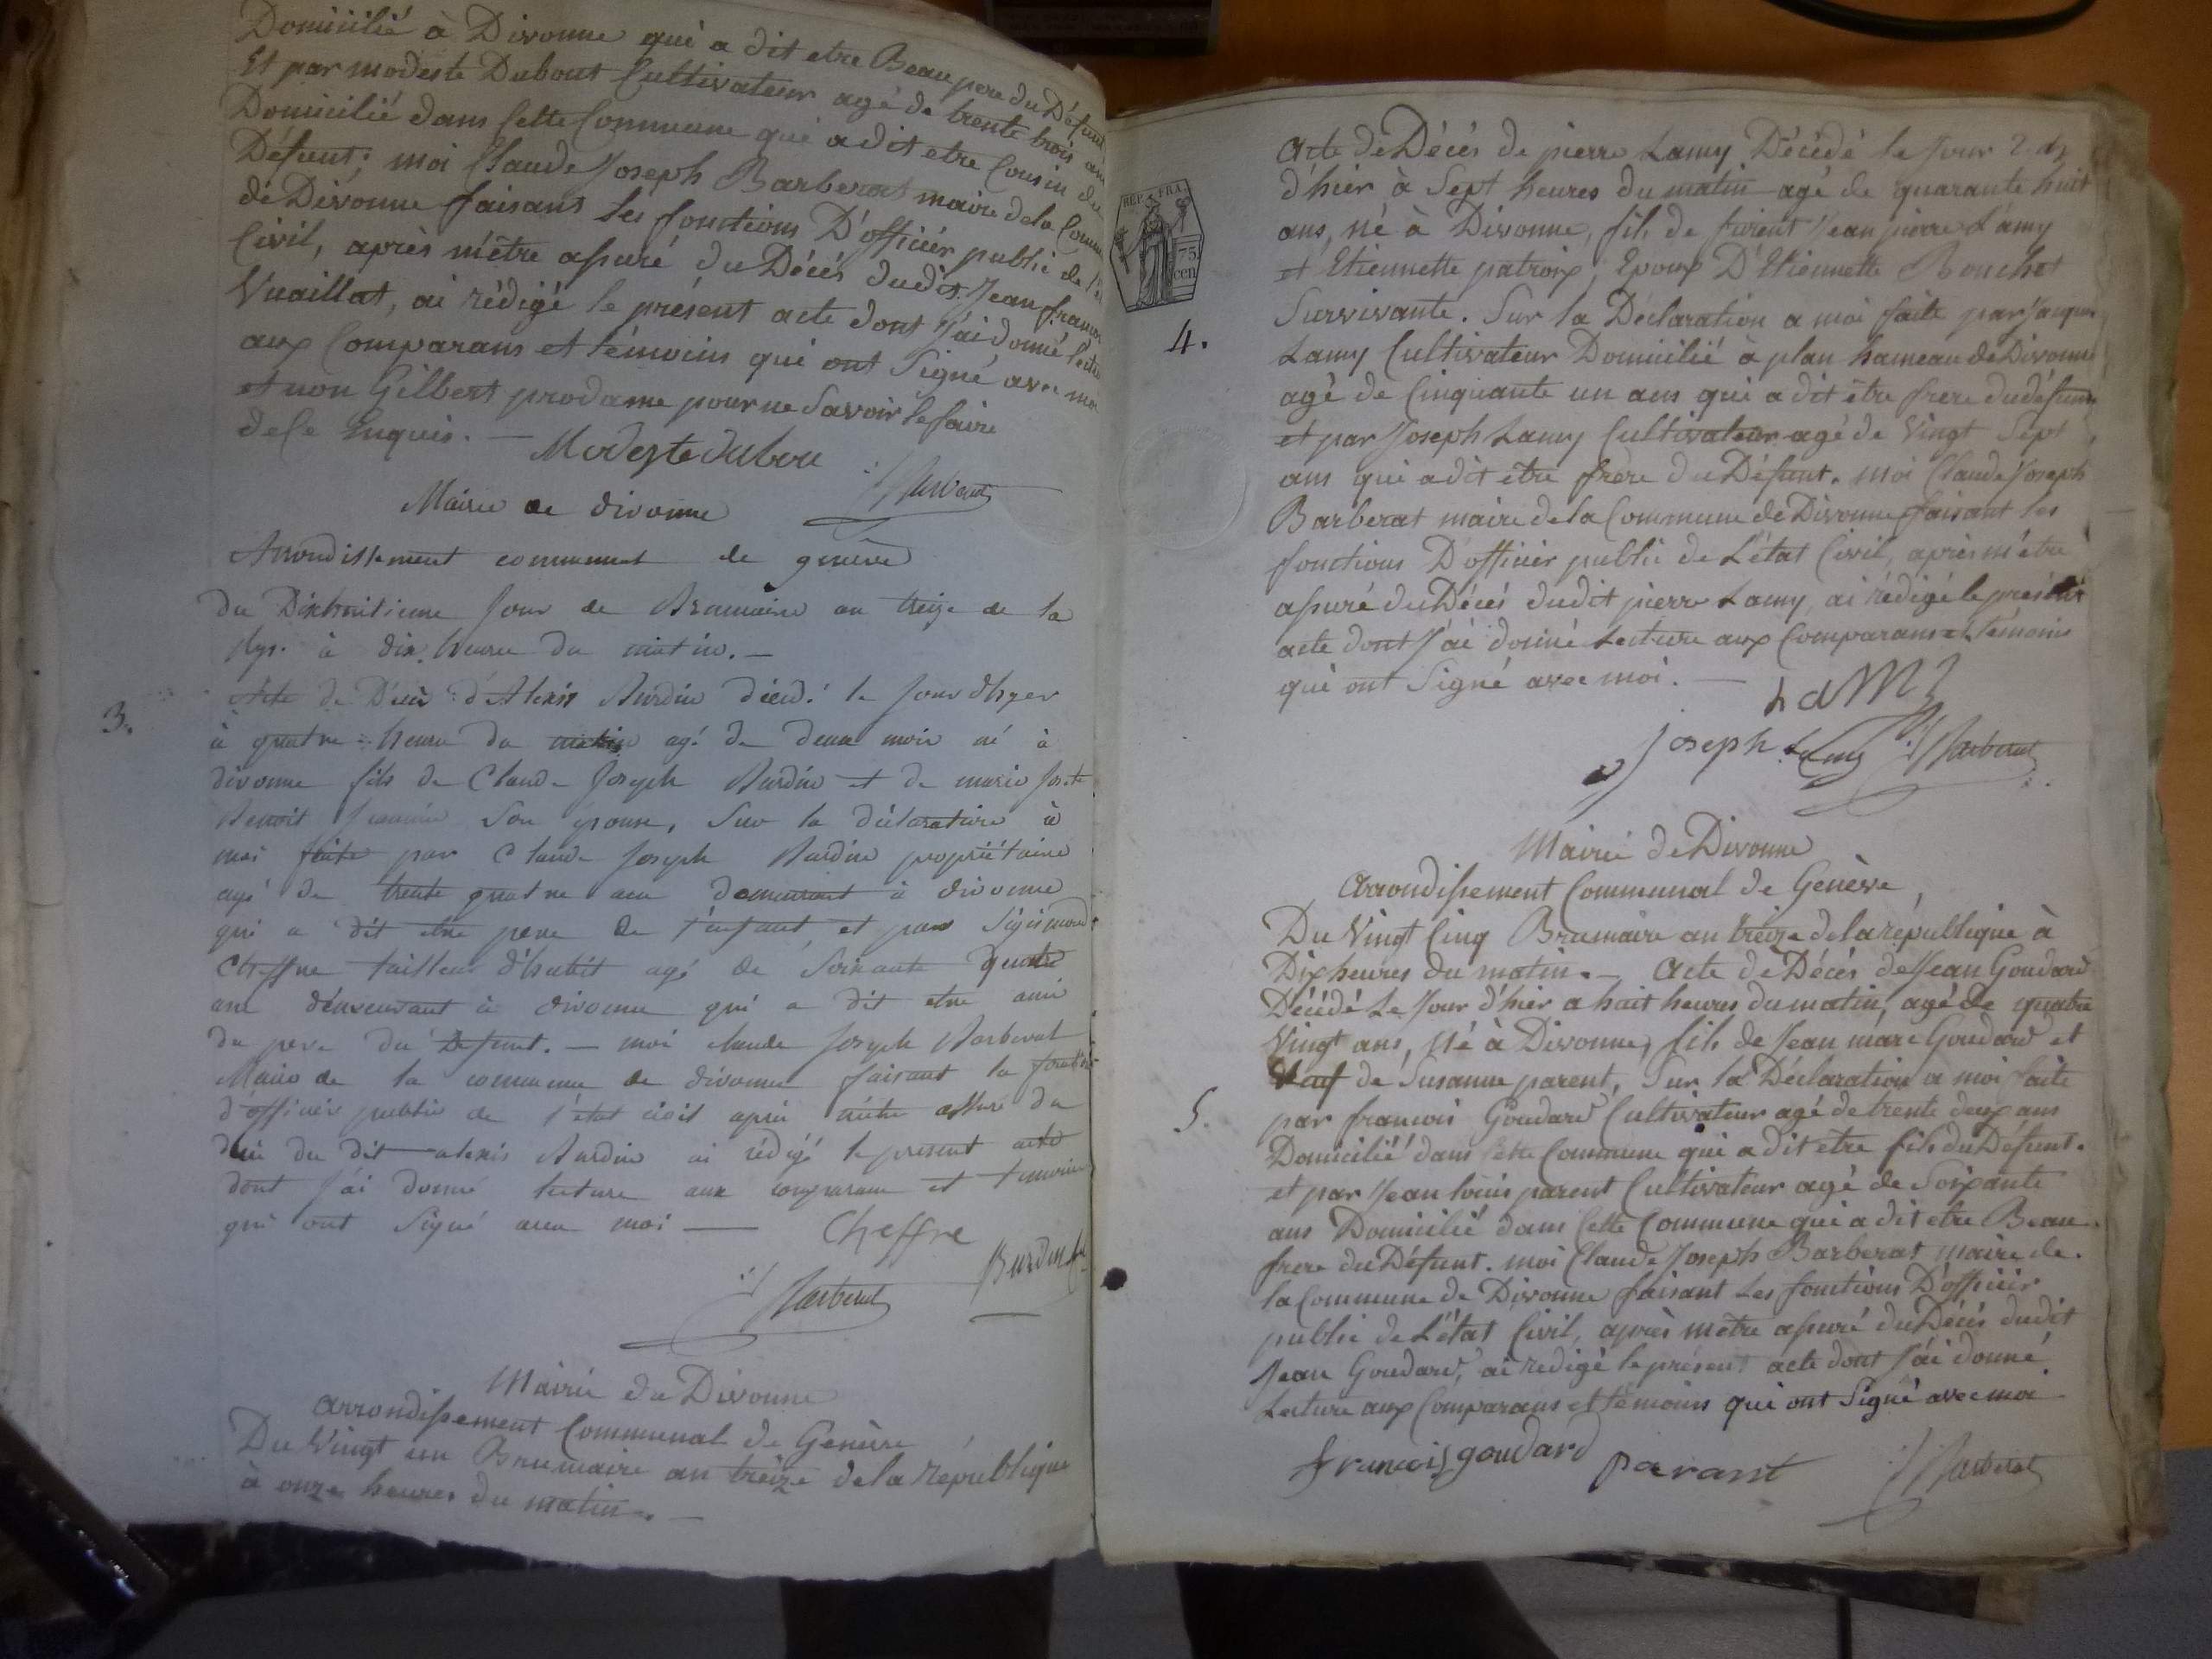 Domicilié à Divonne qui a dit etre Beau pere du Défunt
Et par modeste Dubout Cultivateur agé de trente trois ans
Domicilié dans Cette Commune qui a dit etre Cousin du
Défunt; moi Claude Joseph Barberat maire de la Commune
de Divonne faisant les fonctions D'officiér public de l'é
Civil, après m'être assuré du Décés dudit Jean françois
Vuaillat, ai rédigé le présent acte dont J'ai donné lectu
aux Comparans et témoins qui ont Signé avec moi
et non Gilbert prodame pour ne Savoir le faire
de ce Enquis. —
Modeste dubou
Barberat
Mairie de divonne
Arrondissement communal de genève
3.
du Dixhuitieme Jour de Brumaire an treize de la
Rep. à dix heures du matin. —
Acte de Décè d'Alexis Burdin déced. le Jour d'hyer
à quatre heure du matin agé de deux mois né à
divonne fils de Claude Joseph Burdin et de marie Josete
Benoit Son épouse, Sur la déclaration à
moi faite par Claude Joseph Burdin propriétaire
agé de trente quatre ans demeurant à divonne
qui a dit etre pere de l'enfant et par Sigismond
Cheffre tailleur d'habit agé de Soixante quatre
ans demeurant à divonne qui a dit etre ami
du pere du Defunt. — moi claude Joseph Barberat
Maire de la commune de divonne faisant la
d'officier public de l'etat civil après m'être assuré du
décè du dit alexis Burdin ai rédigé le present acte
dont J'ai donné lecture aux comparans et temoins
qui ont Signé avec moi —
Cheffre
Burdin
Barberat
Mairie de Divonne
Arrondissement Communal de Genève
Du Vingt un Brumaire an treize de la République
à onze heures du matin. —
REP. FRA.
75
cen
4.
Acte de Décés de pierre Lamy Décédé le Jour
d'hier à Sept heures du matin agé de quarante huit
ans, né à Divonne, fils de furent Jean pierre Lamy
et Etiennette patroix, Epoux D'Etiennette Bouchet
Survivante. Sur la Déclaration a moi faite par Jaques
Lamy Cultivateur Domicilié à plan hameau de Divonne
agé de Cinquante un ans qui a dit être frere du défunt
et par Joseph Lamy Cultivateur agé de Vingt Sept
ans qui a dit être frère du Défunt. moi Claude Joseph
Barberat maire de la Commune de Divonne faisant les
fonctions D'officier public de L'état Civil, après m'être
assuré du Décés dudit pierre Lamy, ai rédigé le présent
acte dont J'ai donné Lecture aux Comparans et témoins
qui ont Signé avec moi. —
LAMY
Joseph Lamy
Barberat
Mairie de Divonne
Arrondissement Communal de Genève,
5.
Du Vingt Cinq Brumaire an treize de la république à
Dix heures du matin. — Acte de Décés de Jean Goudard
Décédé Le Jour d'hier a huit heures du matin, agé de quatre
Vingt ans, Né à Divonne, fils de Jean marc Goudard et
Veuf de Susanne parent, Sur la Déclaration a moi faite
par francois Goudard Cultivateur agé de trente deux ans
Domicilié dans Cette Commune qui a dit etre fils du Défunt.
et par Jean louis parent Cultivateur agé de Soixante
ans Domicilié dans Cette Commune qui a dit etre Beau
frere du Défunt. moi Claude Joseph Barberat maire de
la Commune de Divonne faisant Les fonctions D'officiér
public de L'état Civil, après m'etre assuré du Décés dudit
Jean Goudard, ai redigé le présent acte dont J'ai donné
Lecture aux Comparans et témoins qui ont Signé avec moi
francois goudard
parant
Barberat